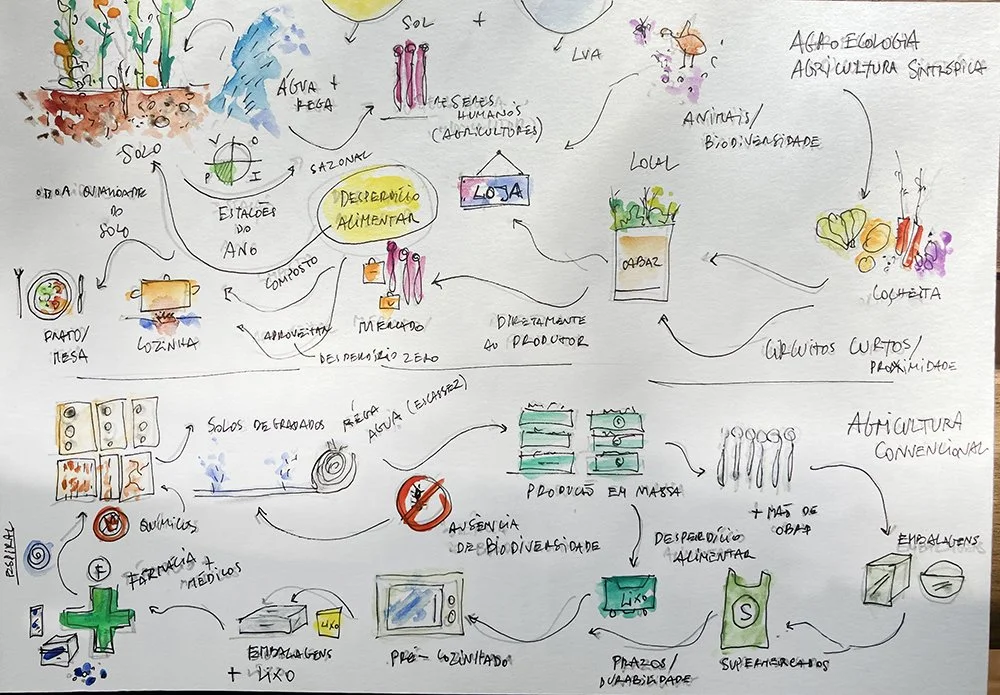 SOL
+
LVA
AGROECOLOGIA
AGRICULTURA SINTRÓPICA
ÁGUA +
REGA
HUMANOS
(AGRICULTORES)
ANIMAIS/
BIODIVERSIDADE
SOLO
V O
P I
SAZONAL
LOCAL
BOA QUALIDADE
DO
SOLO
ESTAÇÕES
DO
ANO
DESPERDÍCIO
ALIMENTAR
LOJA
CABAZ
COLHEITA
COMPOSTO
PRATO/
MESA
COZINHA
APROVEITAR
MERCADO
DESPERDÍCIO ZERO
DIRETAMENTE
AO PRODUTOR
CIRCUITOS CURTOS/
PROXIMIDADE
SOLOS DEGRADADOS
RÉGA
ÁGUA (ESCASSEZ)
AGRICULTURA
CONVENCIONAL
PRODUÇÃO EM MASSA
+ MÃO DE
OBRA
QUÍMICOS
AUSÊNCIA
DE BIODIVERSIDADE
DESPERDÍCIO
ALIMENTAR
EMBALAGENS
ESPIRAL
F
FARMÁCIA +
MÉDICOS
LIXO
LIXO
S
EMBALAGENS
+ LIXO
PRÉ-COZINHADO
PRAZOS/
DURABILIDADE
SUPERMERCADOS